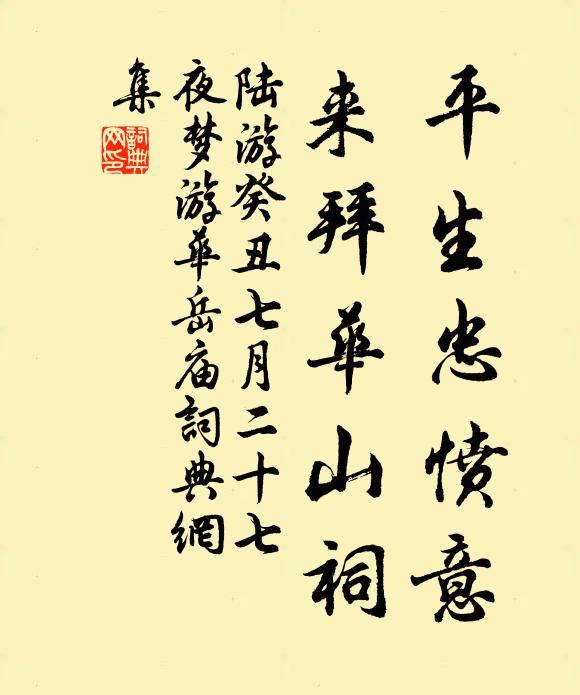 平生忠愤意
来拜华山祠
陆游癸丑七月二十七
夜梦游华岳庙词典網
集
詞典網印